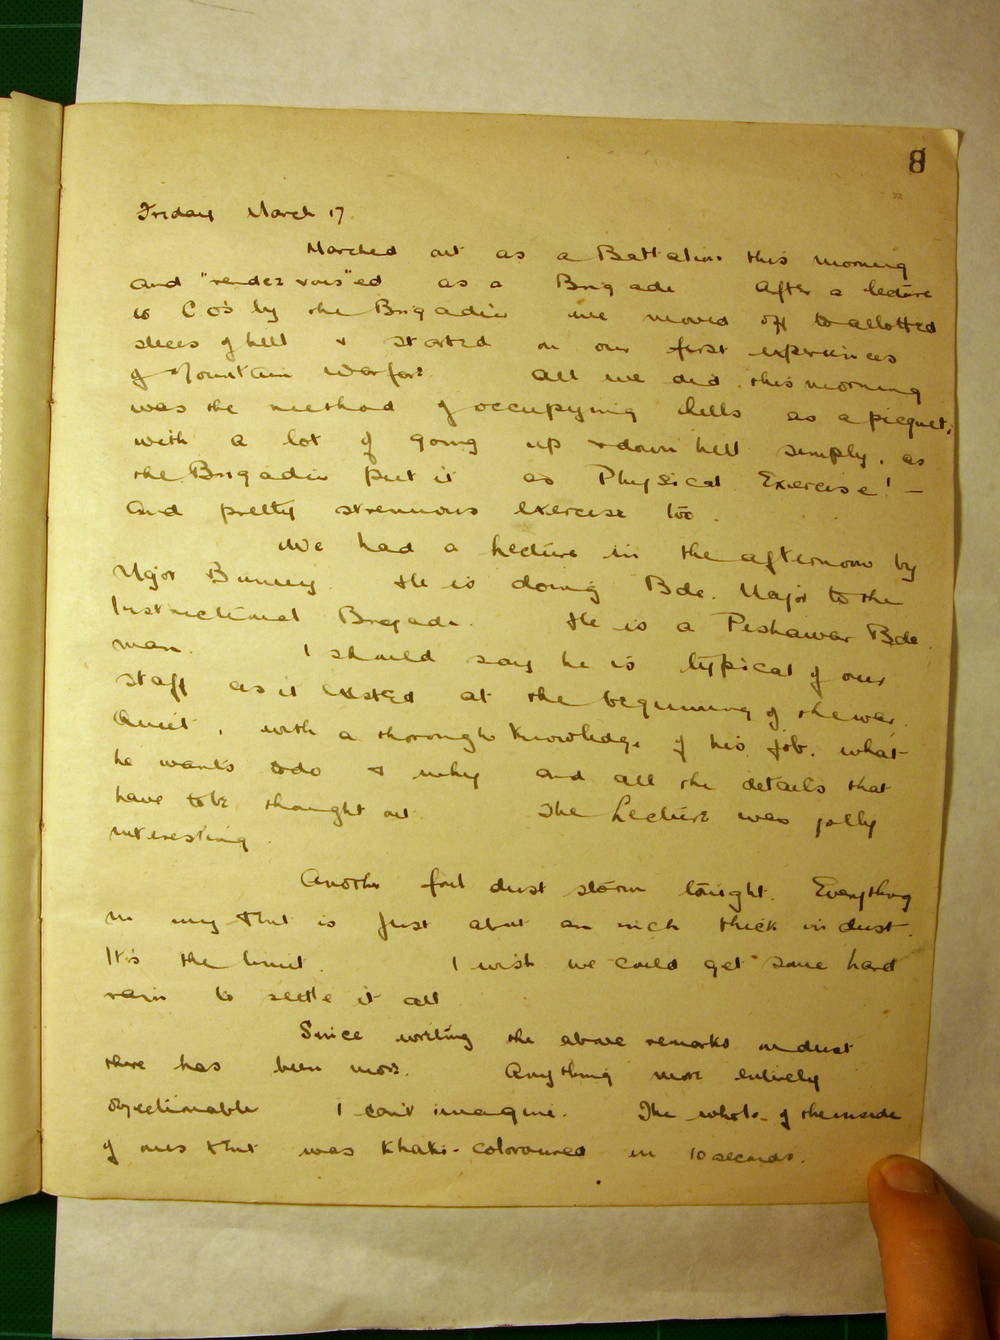 8
Friday March 17
Marched out as a Battalion this morning
and "rendezvous"ed as a Brigade After a lecture
to C.O's by the Brigadier we moved off to allotted
slices of hill & started on our first experiences
of Mountain Warfare All we did this morning
was the method of occupying hills as a picquet,
with a lot of going up & down hill simply, as
the Brigadier put it as Physical Exercise! —
and pretty strenuous exercise too.
We had a lecture in the afternoon by
Major Bunny. He is doing Bde. Major to the
Instructional Brigade. He is a Peshawar Bde.
man. I should say he is typical of our
staff as it existed at the beginning of the war.
Quiet, with a thorough knowledge of his job. what
he wants to do & why and all the details that
have to be thought out The Lecture was jolly
interesting.
Another foul dust storm tonight. Everything
in my tent is just about an inch thick in dust.
It's the limit. I wish we could get some hard
rain to settle it all
Since writing the above remarks on dust
there has been more. Anything more entirely
objectionable I can't imagine. The whole of the inside
of ones tent was khaki-coloroured in 10 seconds.